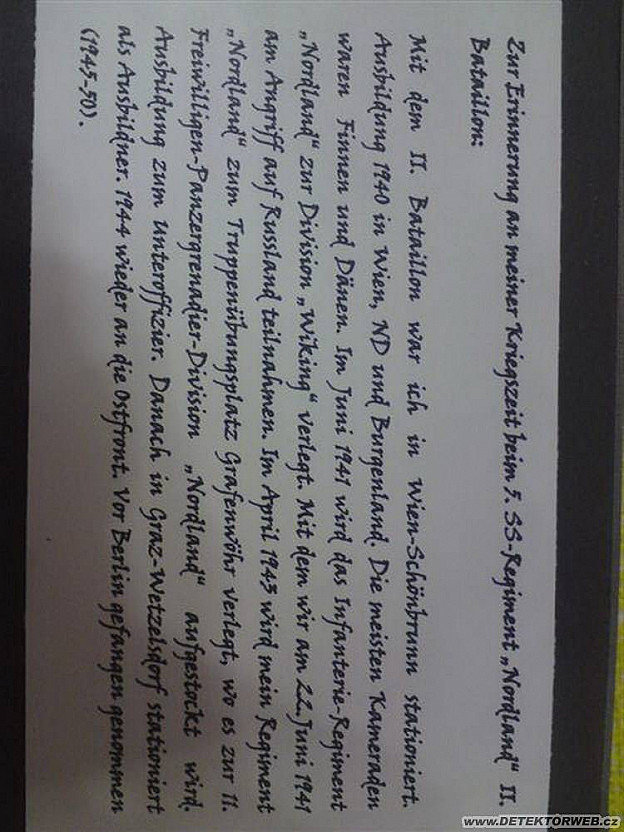 Zur Erinnerung an meiner Kriegszeit beim 5. SS-Regiment „Nordland“ II.
Bataillon:
Mit dem II. Bataillon war ich in Wien-Schönbrunn stationiert.
Ausbildung 1940 in Wien, ND und Burgenland. Die meisten Kameraden
waren Finnen und Dänen. Im Juni 1941 wird das Infanterie-Regiment
„Nordland“ zur Division „Wiking“ verlegt. Mit dem wir am 22. Juni 1941
am Angriff auf Russland teilnahmen. Im April 1943 wird mein Regiment
„Nordland“ zum Truppenübungsplatz Grafenwöhr verlegt, wo es zur 11.
Freiwilligen-Panzergrenadier-Division „Nordland“ aufgestockt wird.
Ausbildung zum Unteroffizier. Danach in Graz-Wetzelsdorf stationiert
als Ausbildner. 1944 wieder an die Ostfront. Vor Berlin gefangen genommen
(1945-50).
WWW.DETEKTORWEB.CZ